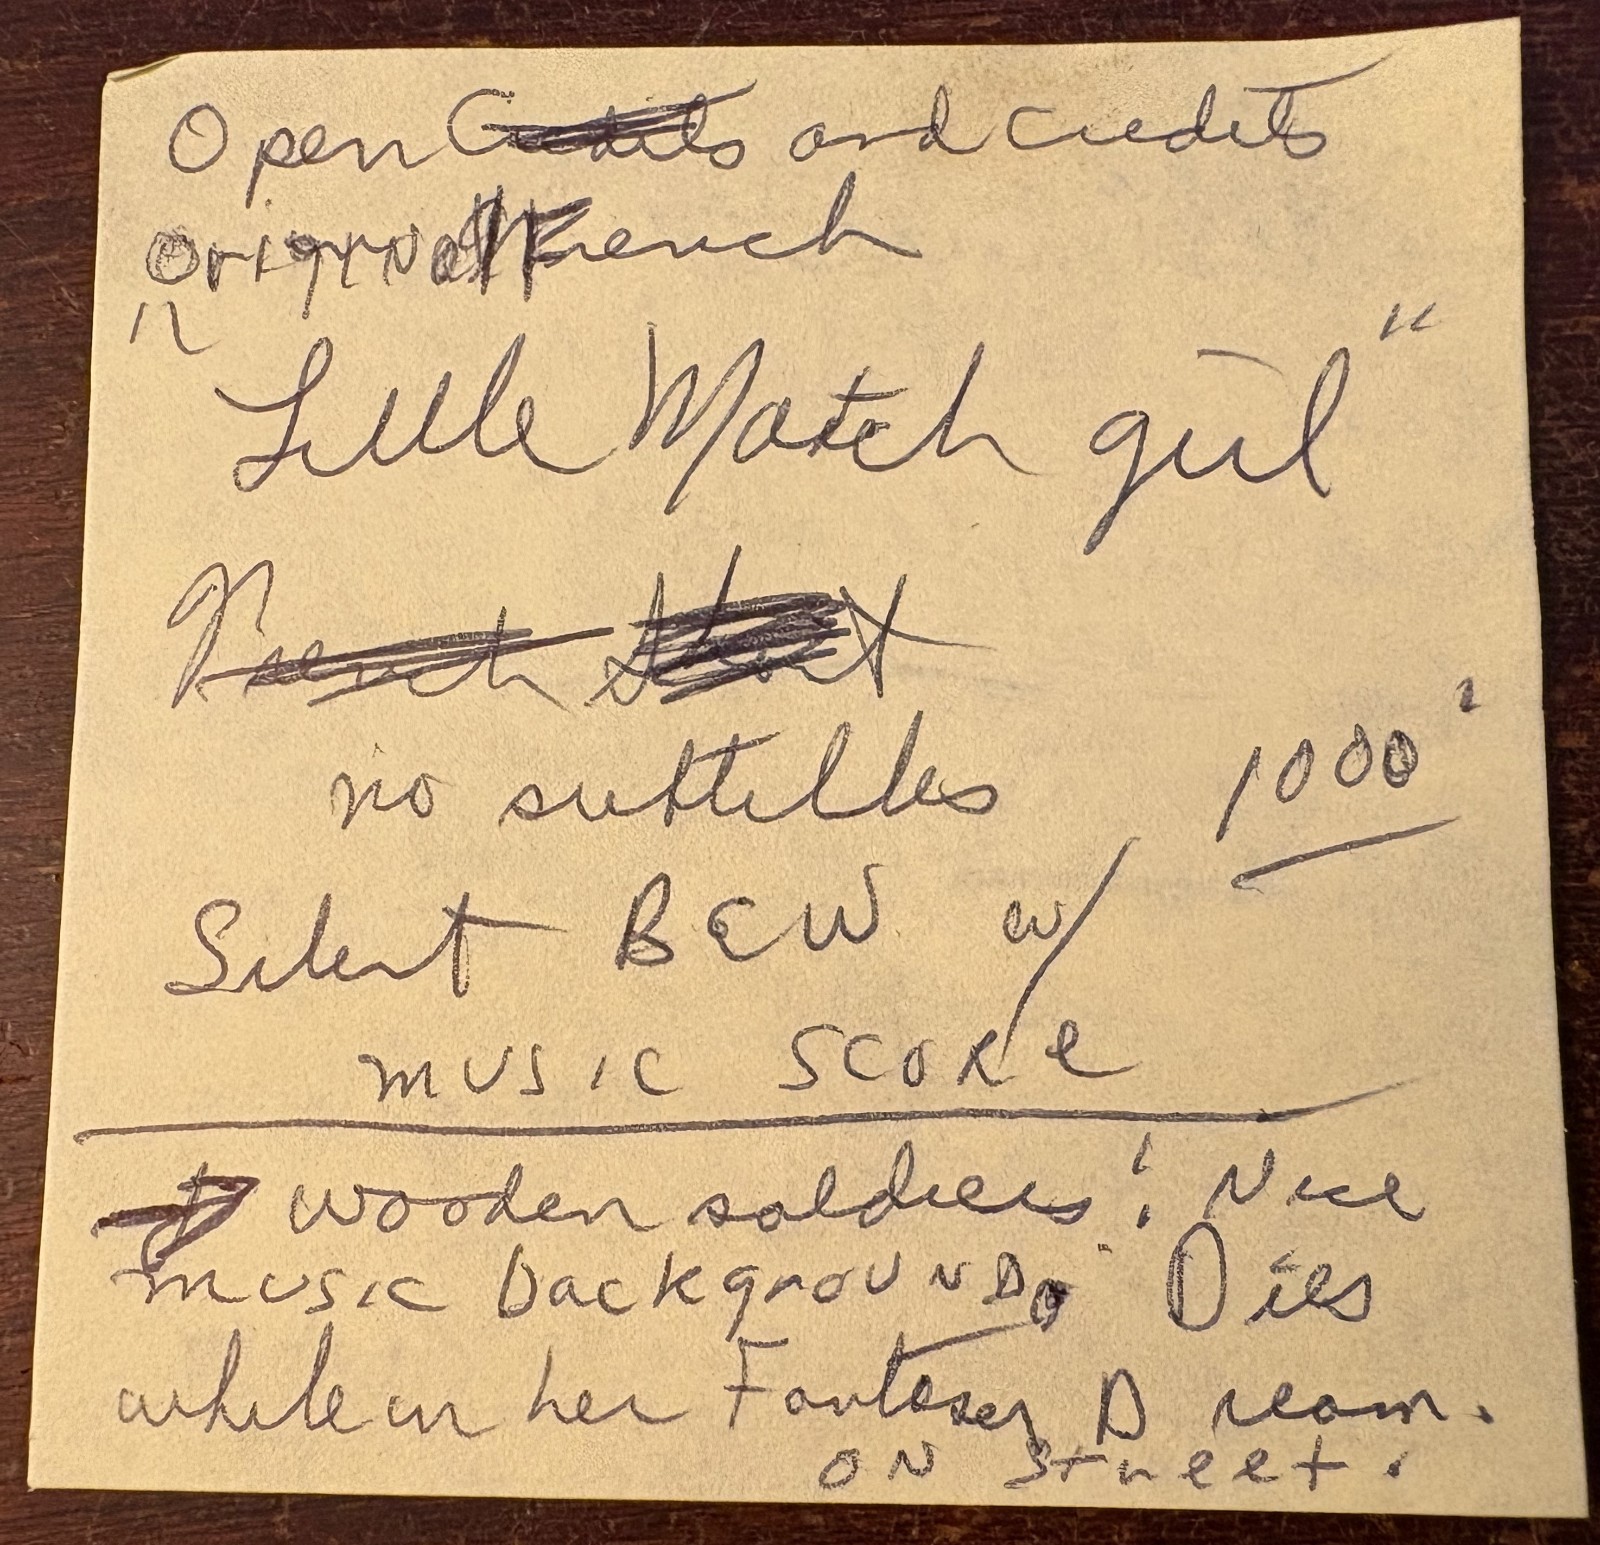 Open Credits and credits
Original French
"Little Match girl"
French Short
no subtitles 1000'
Silent B&W w/
music score
→ wooden soldiers! Nice
music background. Dies
while in her Fantasy Dream.
ON street.